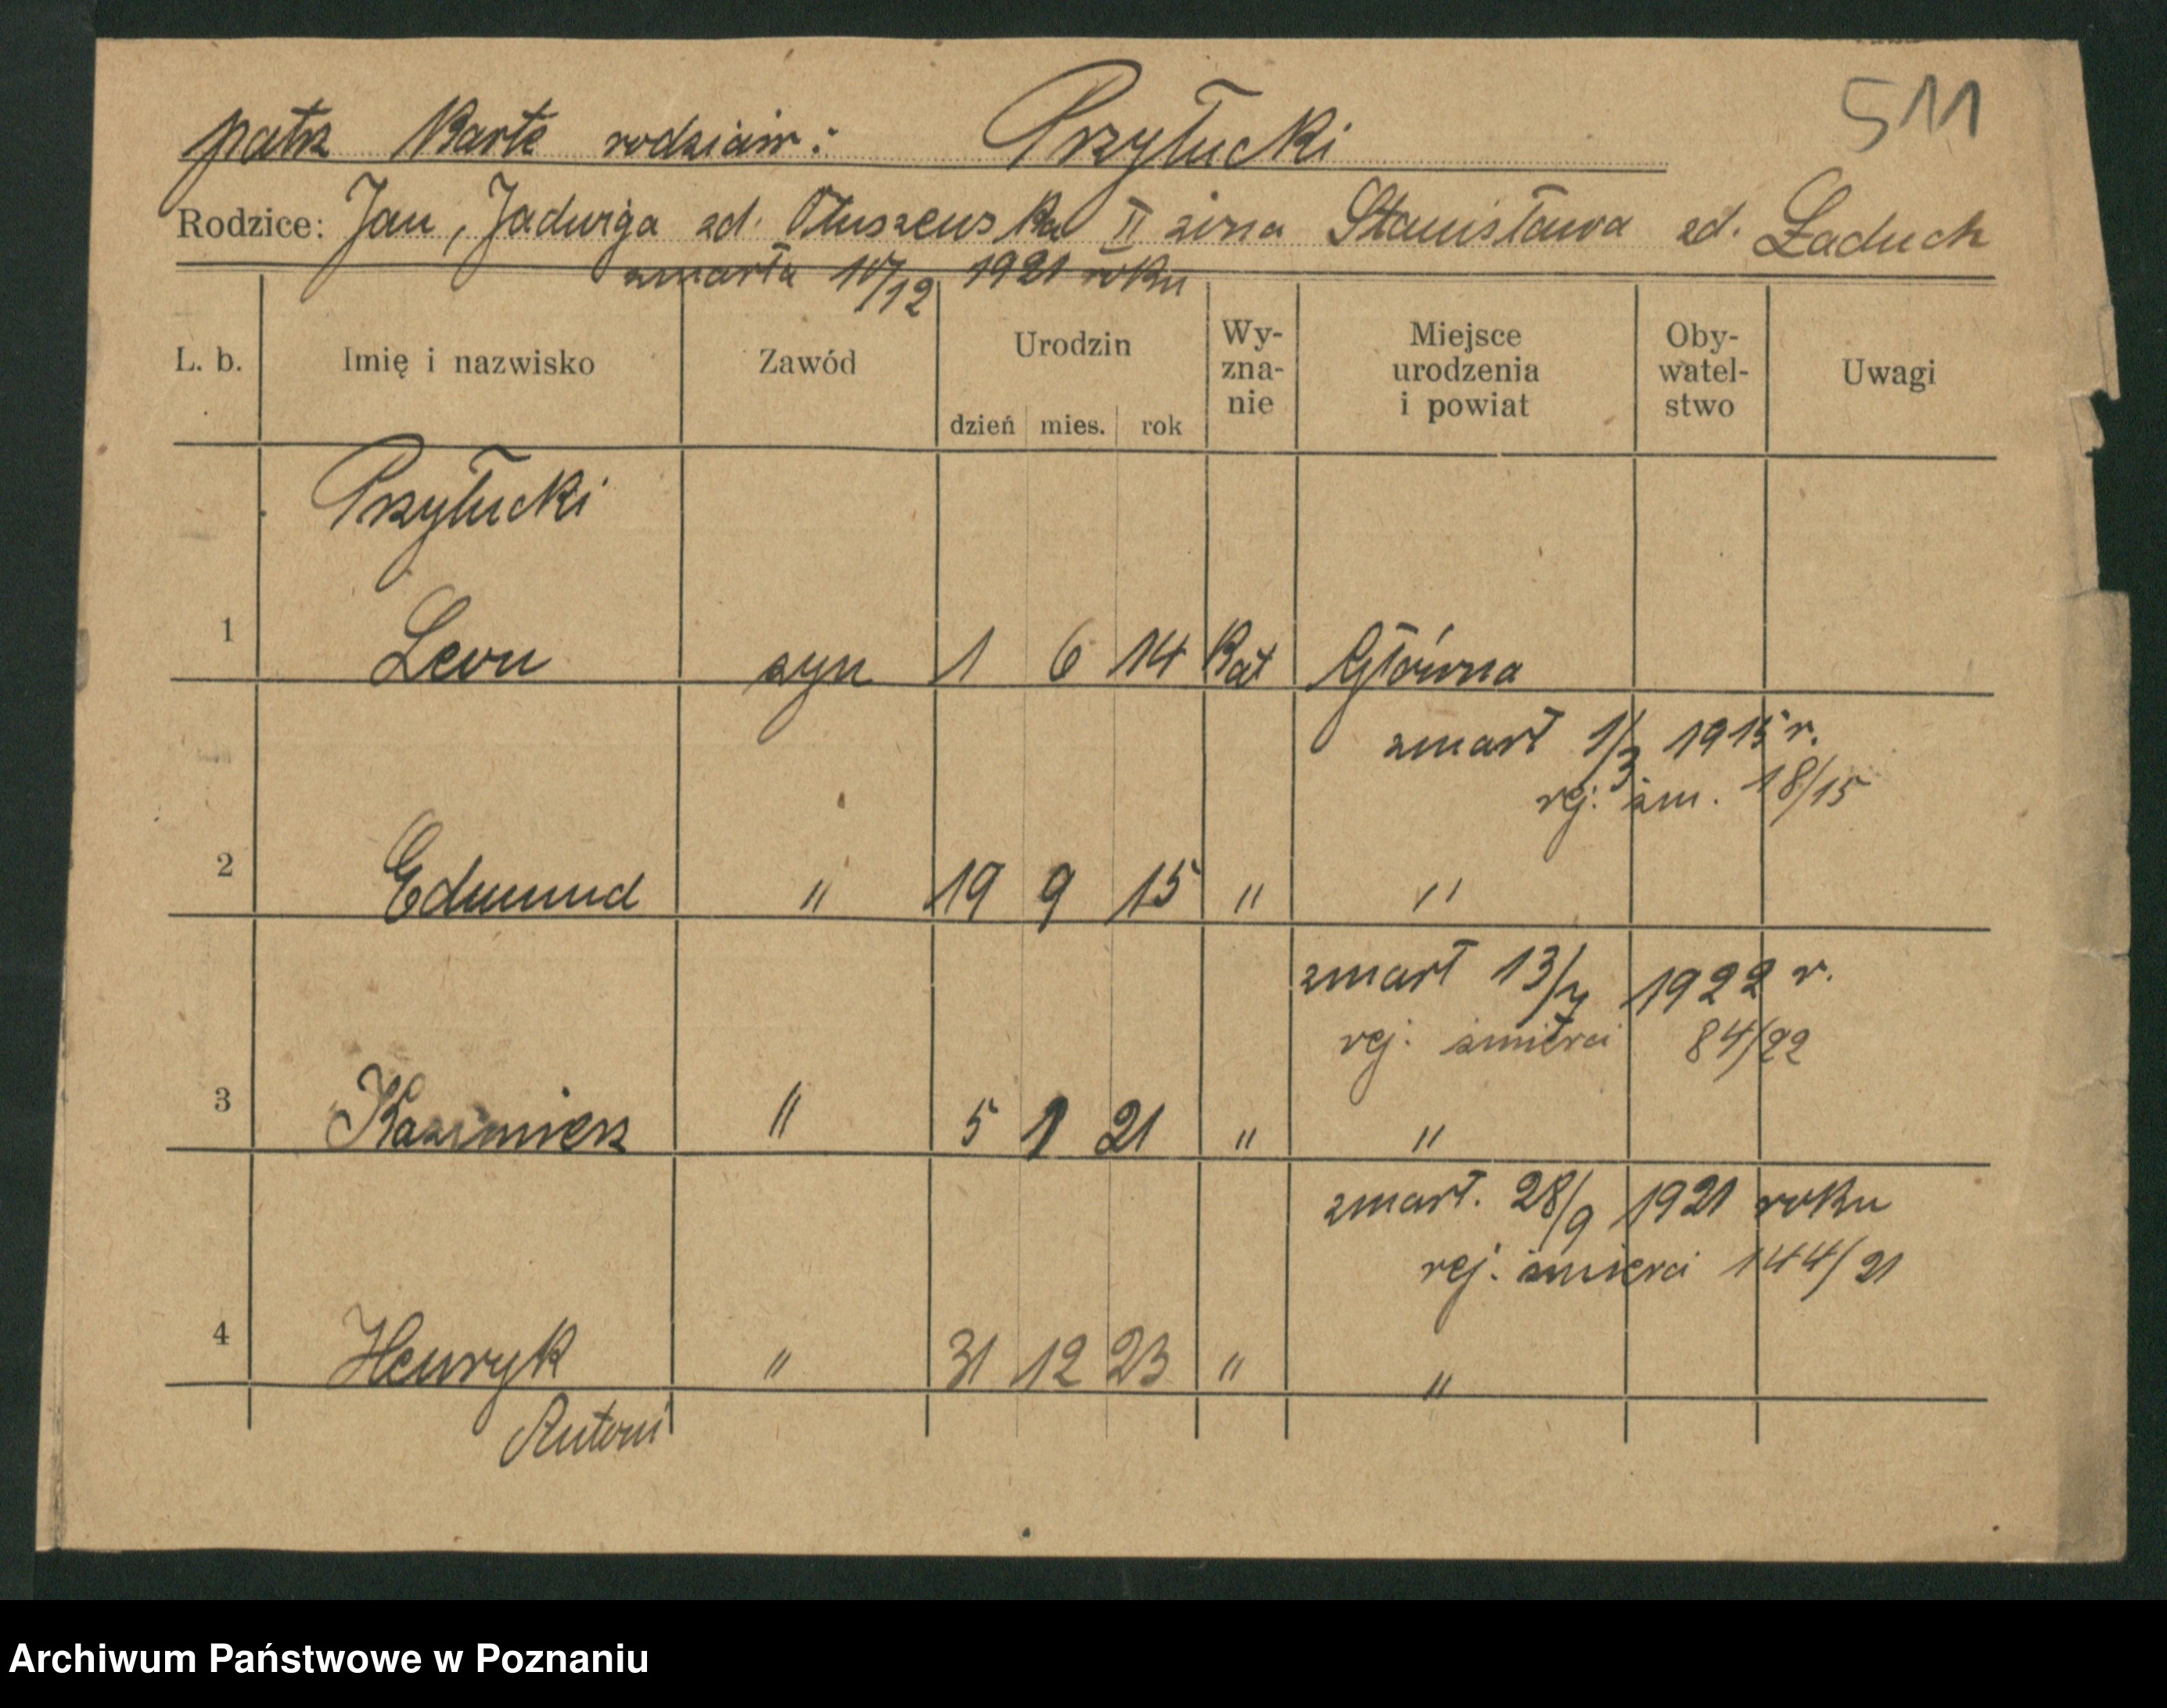 511
patrz Kartę rodziców: Przyłucki
Rodzice: Jan, Jadwiga zd. Otuszewska II żona Stanisława zd. Ładuch
zmarła 10/12 1921 roku
L. b. Imię i nazwisko Zawód Urodzin dzień mies. rok Wyznanie Miejsce urodzenia i powiat Obywatelstwo Uwagi
Przyłucki
1 Leon syn 1 6 14 Kat Główna
zmarł 1/3 1915 r.
rej. śm. 18/15
2 Edmund " 19 9 15 " "
zmarł 13/4 1922 r.
rej. śmierci 84/22
3 Kazimierz " 5 1 21 " "
zmarł. 28/9 1921 roku
rej. śmierci 144/21
4 Henryk " 31 12 23 " "
Antoni
Archiwum Państwowe w Poznaniu